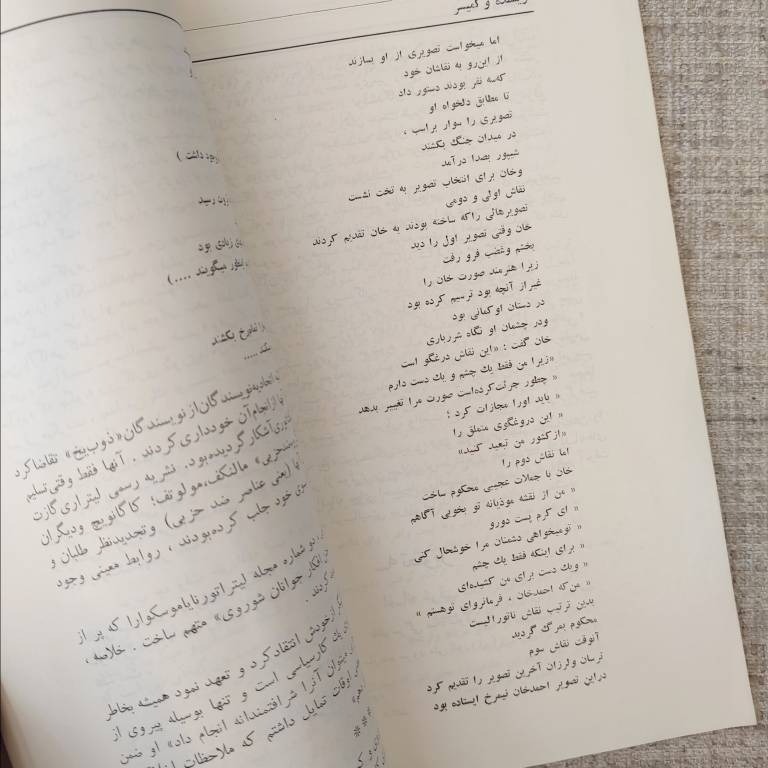 نویسنده و کمیسر
اما میخواست تصویری از او بسازند
از این‌رو به نقاشان خود
که‌سه نفر بودند دستور داد
تا مطابق دلخواه او
تصویری را سوار براسب ،
در میدان جنگ بکشند
شیپور بصدا درآمد
وخان برای انتخاب تصویر به تخت نشست
نقاش اولی و دومی
تصویرهائی راکه ساخته بودند به خان تقدیم کردند
خان وقتی تصویر اول را دید
بخشم وغضب فرو رفت
زیرا هنرمند صورت خان را
غیراز آنچه بود ترسیم کرده بود
در دستان اوکمانی بود
ودر چشمان او نگاه شررباری
خان گفت : «این نقاش درغگو است
«زیرا من فقط یك چشم و یك دست دارم
« چطور جرئت‌کرده‌است صورت مرا تغییر بدهد
« باید اورا مجازات کرد ؛
« این دروغگوی متملق را
«ازکشور من تبعید کنید»
اما نقاش دوم را
خان با جملات عجیبی محکوم ساخت
« من از نقشه موذیانه تو بخوبی آگاهم
« ای کرم پست دورو
« تومیخواهی دشمنان مرا خوشحال کنی
« برای اینکه فقط یك چشم
« ویك دست برای من کشیده‌ای
« من‌که احمدخان ، فرمانروای توهستم »
بدین ترتیب نقاش ناتورالیست
محکوم بمرگ گردید
آنوقت نقاش سوم
ترسان ولرزان آخرین تصویر را تقدیم کرد
دراین تصویر احمدخان نیمرخ ایستاده بود
وجود داشت )
رسید
زیادی بود
میگویند ....)
بکشند
.....
اتحادیه‌نویسندگان‌از نویسندگان «ذوب‌یخ» تقاضاکرد
ازانجام‌آن خودداری کردند . آنها فقط وقتی تسلیم
آشکار گردیده‌بود. نشریه رسمی لیتراری گازت
حزبی» مالنکف،مولوتف؛ کاگانویچ ودیگران
(یعنی عناصر ضد حزبی) وتجدیدنظر طلبان و
خود جلب کرده‌بودند ، روابط معینی وجود
دو شماره مجله لیتراتورنایاموسکوارا که پر از
افکار جوانان شوروی» متهم ساخت . خلاصه ،
کردند .
ازخودش انتقادکرد و تعهد نمود همیشه بخاطر
یك کارسیاسی است و تنها بوسیله پیروی از
میتوان آنرا شرافتمندانه انجام داد» او ضمن
اوقات تمایل داشتم که ملاحظات
***